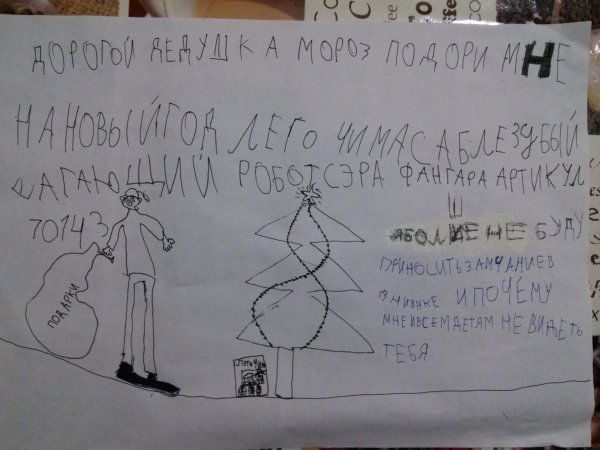 ДОРОГОЙ ДЕДУШКА МОРОЗ ПОДОРИ МНЕ
НА НОВЫЙ ГОД ЛЕГО ЧИМА САБЛЕЗУБЫЙ
ШАГАЮЩИЙ РОБОТ СЭРА ФАНГАРА АРТИКУЛ
70143
Ш
Я БОЛЕ НЕ БУДУ
ПРИНОСИТЬ ЗАМЧАНИЕВ
В ДНИВНИКЕ И ПОЧЕМУ
МНЕ И ВСЕМ ДЕТЯМ НЕ ВИДЕТЬ
ТЕБЯ
ПОДАРКИ
ЛЕГО ЧИМА